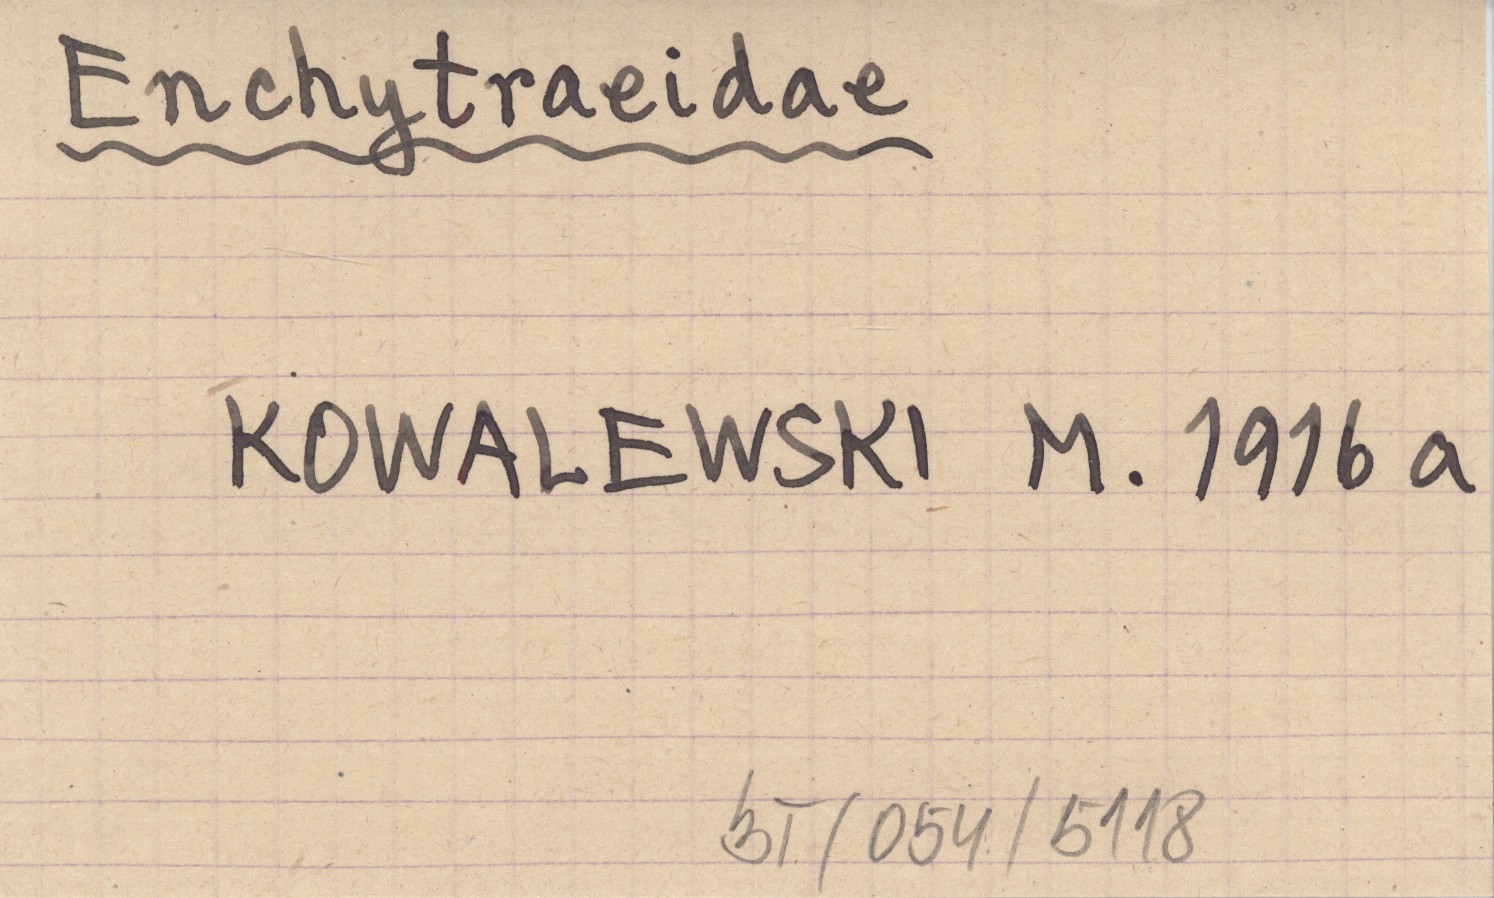 Enchytraeidae
KOWALEWSKI M. 1916 a
BI/054/5118